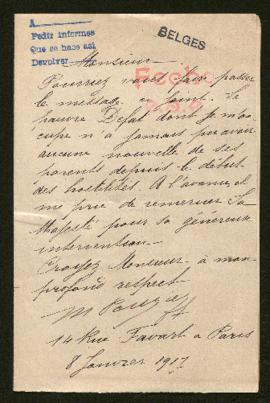 A
Pedir informes
Que se hace asi
Devolver
BELGES
Fecho
Monsieur
Pourriez vous faire passer
le message joint. Le
pauvre Defat dont je m'oc-
cupe n'a jamais pu avoir
aucune nouvelle de ses
parents depuis le début
des hostilités. A l'avance il
me prie de remercier Sa
Majesté pour sa généreuse
intervention
Croyez Monsieur à mon
profond respect
14 Rue Favart à Paris
8 Janvier 1917